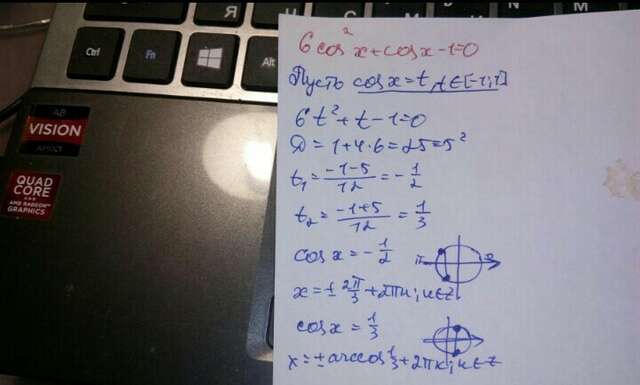 Я
Ctrl
Fn
Alt
VISION
AMD
QUAD
CORE
AMD RADEON™
GRAPHICS
6cos²x+cosx-1=0
Пусть cosx=t, t∈[-1;1]
6t²+t-1=0
D=1+4·6=25=5²
t₁=(-1-5)/12=-1/2
t₂=(-1+5)/12=1/3
cosx=-1/2
π 0
x=±2π/3+2πк; к∈Z
cosx=1/3
x=±arccos1/3+2πк; к∈Z